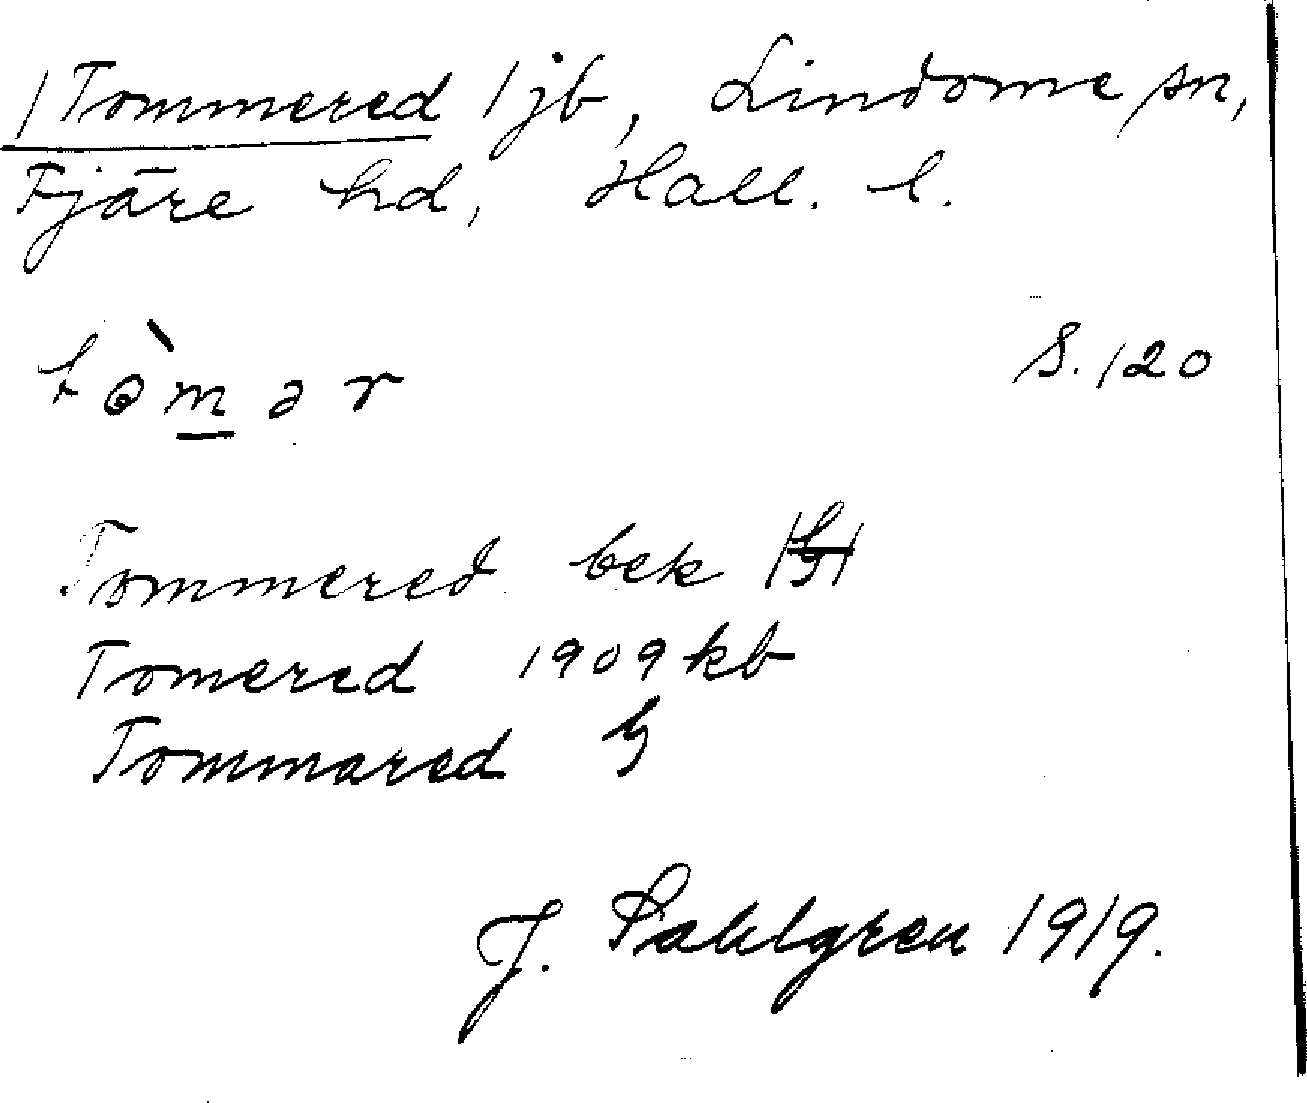 /Tommered / jb, Lindome sn,
Fjäre hd, Hall. l.
S. 120
tòmər
Tommered bek
Tomered 1909 kb
Tommared
J. Sahlgren 1919.